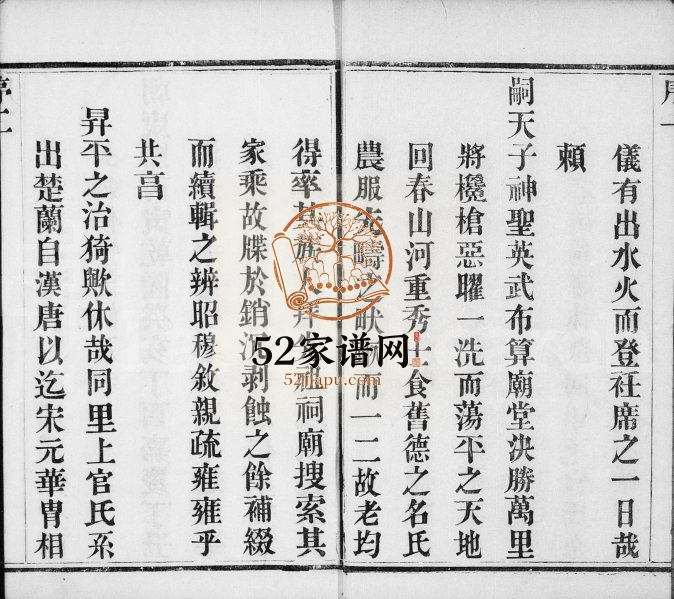 序一
儀有出水火而登衽席之一日哉
頼
嗣天子神聖英武布算廟堂決勝萬里
將欃槍惡曜一洗而蕩平之天地
回春山河重秀士食舊德之名氏
農服先疇之畎畝而一二故老均
得率其族人拜祖祠廟搜索其
家乘故牒於銷沉剥蝕之餘補綴
而續輯之辨昭穆敘親疏雍雍乎
共亯
昇平之治猗歟休哉同里上官氏系
出楚蘭自漢唐以迄宋元華胄相
序二
52家谱网
52jiapu.com